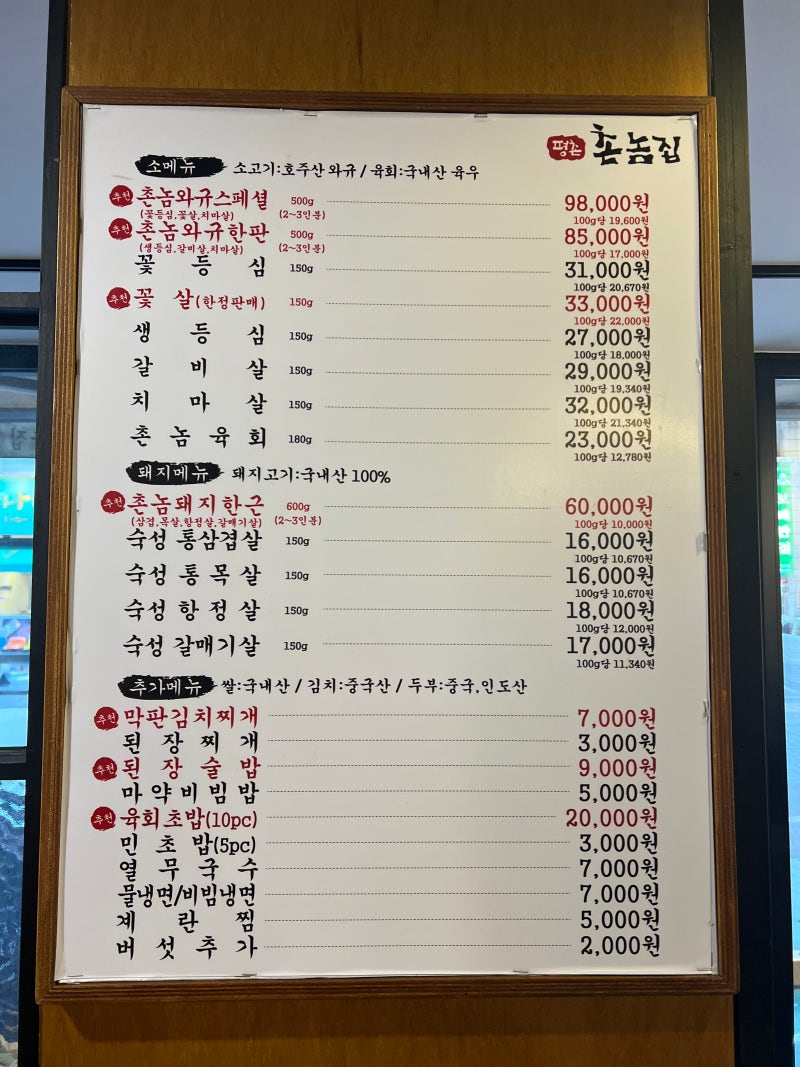 평촌 촌놈집
소메뉴 소고기:호주산 와규 / 육회:국내산 육우
추천 촌놈와규스페셜 500g 98,000원
(꽃등심,꽃살,치마살) (2~3인분) 100g당 19,600원
추천 촌놈와규한판 500g 85,000원
(생등심,갈비살,치마살) (2~3인분) 100g당 17,000원
꽃등심 150g 31,000원
100g당 20,670원
추천 꽃살(한정판매) 150g 33,000원
100g당 22,000원
생등심 150g 27,000원
100g당 18,000원
갈비살 150g 29,000원
100g당 19,340원
치마살 150g 32,000원
100g당 21,340원
촌놈육회 180g 23,000원
100g당 12,780원
돼지메뉴 돼지고기:국내산 100%
추천 촌놈돼지한근 600g 60,000원
(삼겹,목살,항정살,갈매기살) (2~3인분) 100g당 10,000원
숙성 통삼겹살 150g 16,000원
100g당 10,670원
숙성 통목살 150g 16,000원
100g당 10,670원
숙성 항정살 150g 18,000원
100g당 12,000원
숙성 갈매기살 150g 17,000원
100g당 11,340원
추가메뉴 쌀:국내산 / 김치:중국산 / 두부:중국,인도산
추천 막판김치찌개 7,000원
된장찌개 3,000원
추천 된장술밥 9,000원
마약비빔밥 5,000원
추천 육회초밥(10pc) 20,000원
민초밥(5pc) 3,000원
열무국수 7,000원
물냉면/비빔냉면 7,000원
계란찜 5,000원
버섯추가 2,000원